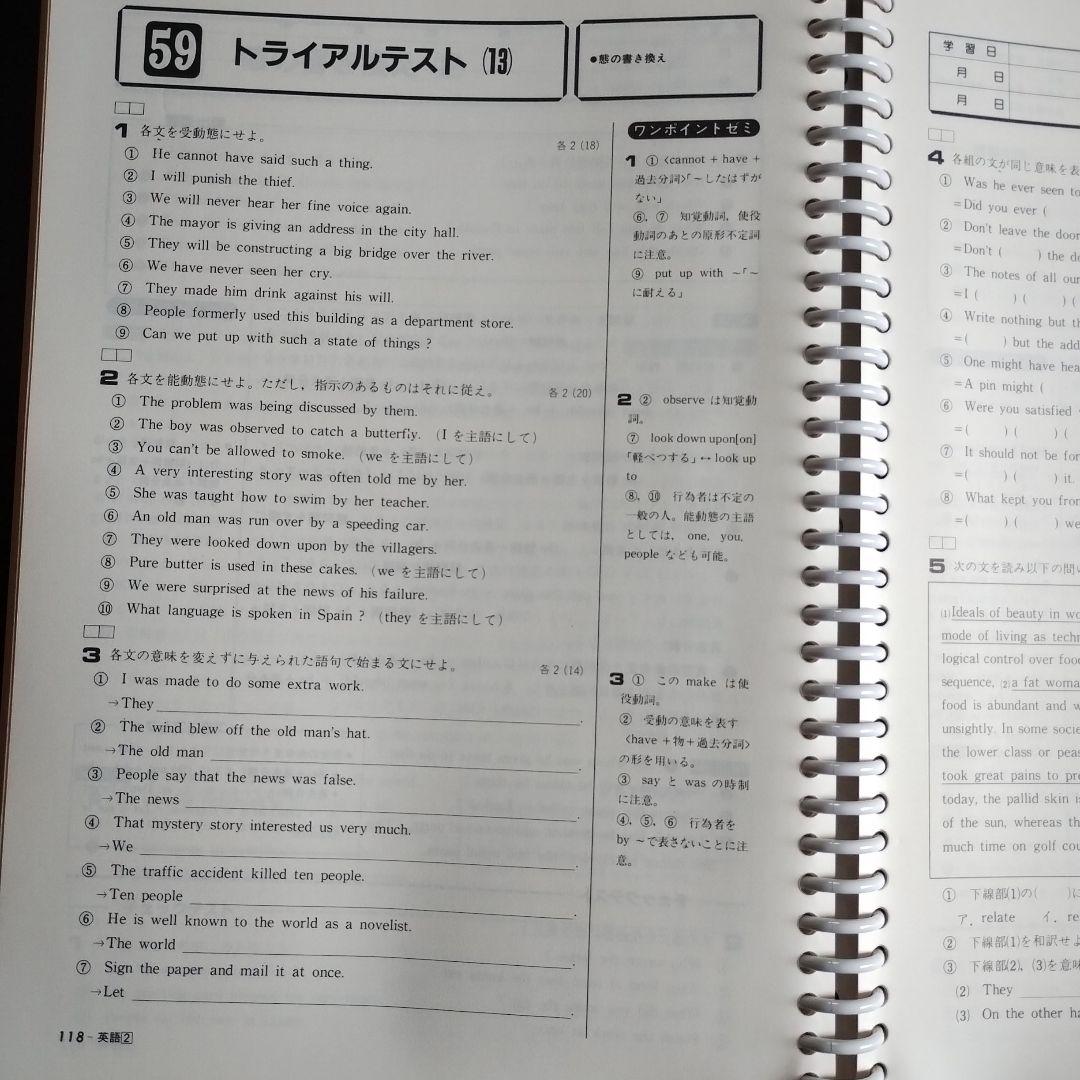 59 トライアルテスト (13)
●態の書き換え
1 各文を受動態にせよ。 各2(18)
① He cannot have said such a thing.
② I will punish the thief.
③ We will never hear her fine voice again.
④ The mayor is giving an address in the city hall.
⑤ They will be constructing a big bridge over the river.
⑥ We have never seen her cry.
⑦ They made him drink against his will.
⑧ People formerly used this building as a department store.
⑨ Can we put up with such a state of things ?
2 各文を能動態にせよ。ただし，指示のあるものはそれに従え。 各2(20)
① The problem was being discussed by them.
② The boy was observed to catch a butterfly. （I を主語にして）
③ You can't be allowed to smoke. （we を主語にして）
④ A very interesting story was often told me by her.
⑤ She was taught how to swim by her teacher.
⑥ An old man was run over by a speeding car.
⑦ They were looked down upon by the villagers.
⑧ Pure butter is used in these cakes. （we を主語にして）
⑨ We were surprised at the news of his failure.
⑩ What language is spoken in Spain ? （they を主語にして）
3 各文の意味を変えずに与えられた語句で始まる文にせよ。 各2(14)
① I was made to do some extra work.
→They
② The wind blew off the old man's hat.
→The old man
③ People say that the news was false.
→The news
④ That mystery story interested us very much.
→We
⑤ The traffic accident killed ten people.
→Ten people
⑥ He is well known to the world as a novelist.
→The world
⑦ Sign the paper and mail it at once.
→Let
118 - 英語2
ワンポイントゼミ
1 ① 〈cannot + have +
過去分詞〉「～したはずが
ない」
⑥，⑦ 知覚動詞，使役
動詞のあとの原形不定詞
に注意。
⑨ put up with ～「～
に耐える」
2 ② observe は知覚動
詞。
⑦ look down upon[on]
「軽べつする」↔ look up
to
⑧，⑩ 行為者は不定の
一般の人。能動態の主語
としては，one, you,
people なども可能。
3 ① この make は使
役動詞。
② 受動の意味を表す
〈have＋物＋過去分詞〉
の形を用いる。
③ say と was の時制
に注意。
④，⑤，⑥ 行為者を
by ～で表さないことに注
意。
学習日
月 日
月 日
4 各組の文が同じ意味を表
① Was he ever seen to
=Did you ever (
② Don't leave the door
=Don't ( ) the do
③ The notes of all our
=I ( ) ( ) (
④ Write nothing but th
=( ) but the add
⑤ One might have hea
=A pin might (
⑥ Were you satisfied
=( ) ( ) (
⑦ It should not be for
=( ) ( ) it.
⑧ What kept you from
=( ) ( ) we
5 次の文を読み以下の問い
(1)Ideals of beauty in wo
mode of living as techn
logical control over food
sequence, (2)a fat woma
food is abundant and w
unsightly. In some socie
the lower class or peas
took great pains to pre
today, the pallid skin is
of the sun, whereas th
much time on golf cou
① 下線部(1)の( )に
ア．relate イ．re
② 下線部(1)を和訳せよ
③ 下線部(2)，(3)を意味
(2) They
(3) On the other ha